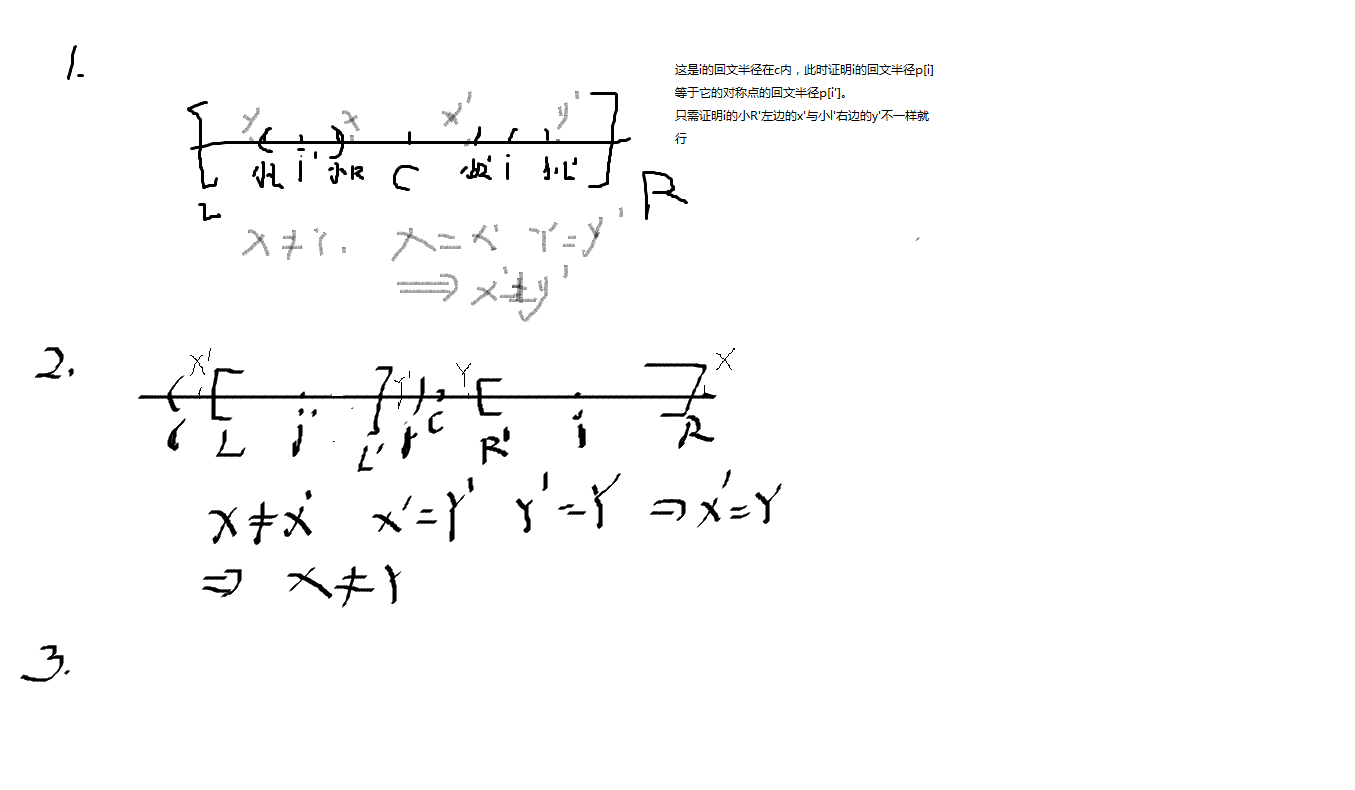 1.
这是i的回文半径在c内，此时证明i的回文半径p[i]
等于它的对称点的回文半径p[i']。
只需证明i的小R'左边的x'与小l'右边的y'不一样就
行
y x x' y'
小L i' 小R C 小R' i 小L'
L R
x ≠ y. x = x' y = y'
⟹ x' ≠ y'
2.
X' Y' Y X
L i' L' C R' i R
X ≠ X' X' = Y' Y' = Y ⇒ X' = Y
⇒ X ≠ Y
3.